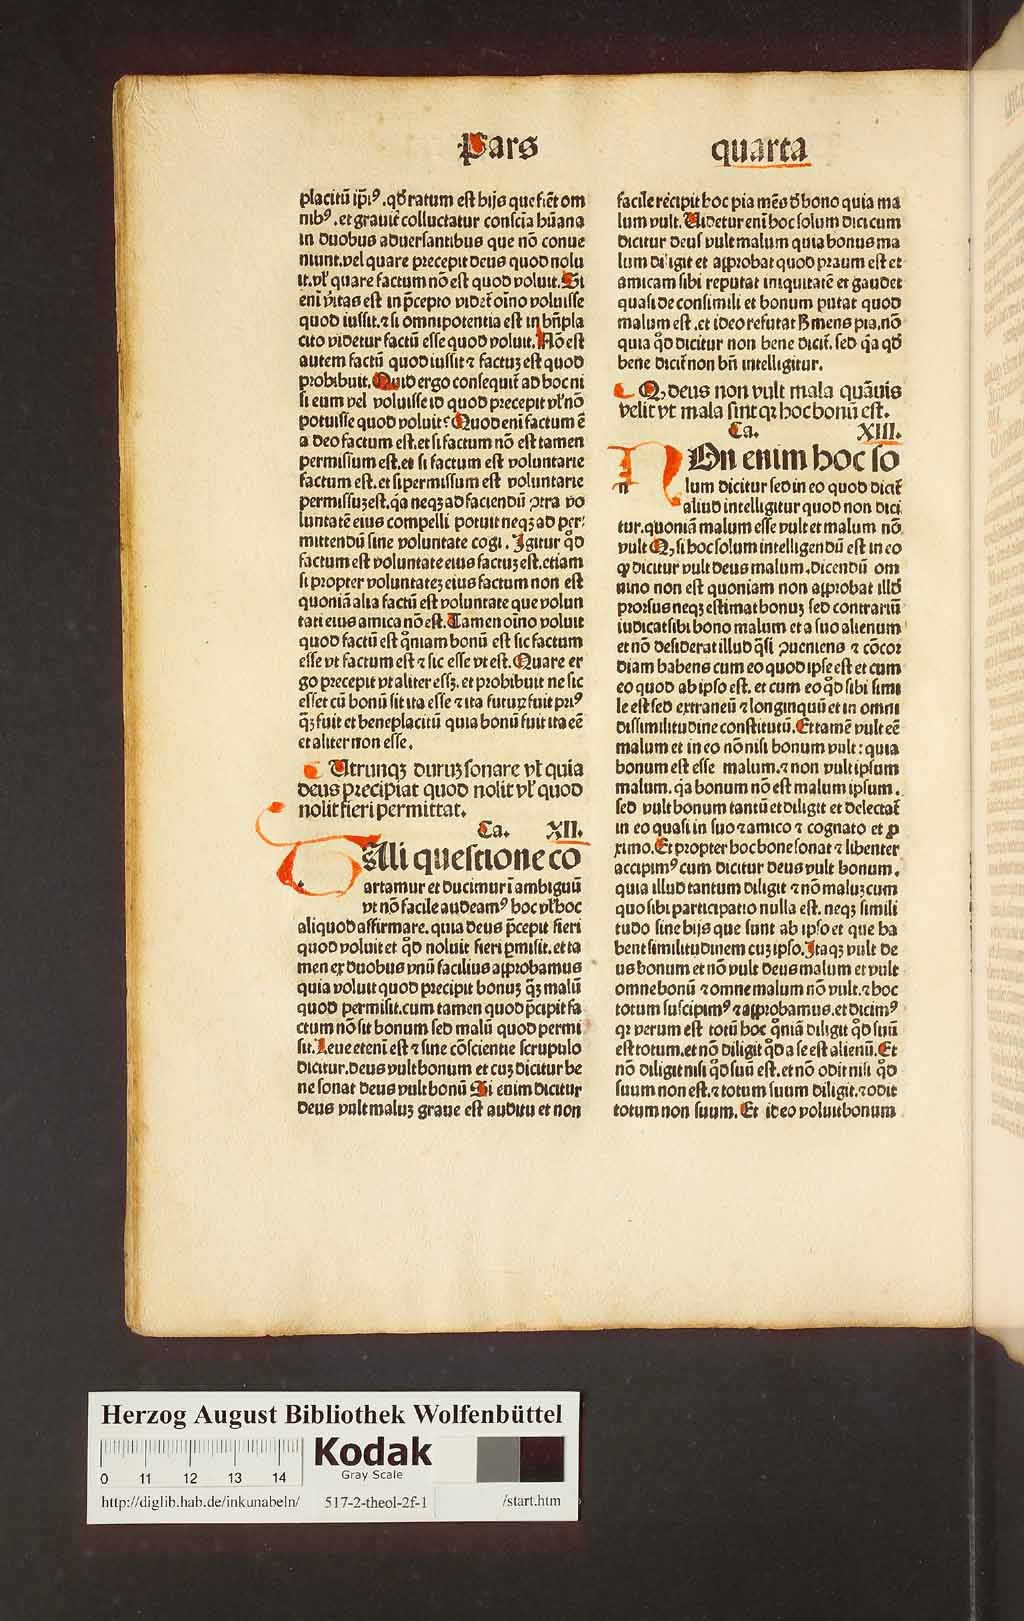 Pars quarta
placitū ip̄iꝰ. qd̛ ratum est hijs que fiēt om
nibꝰ. et grauit̄ colluctatur consc̄ia hūana
in duobus aduersantibus que nō conue
niunt. vel quare precepit deus quod nolu
it. vl̛ quare factum nō est quod voluit. Si
eni v̄itas est in p̄cepto videt̄ oīno voluisse
quod iussit. ⁊ si omnipotentia est in bn̄pla
cito videtur factū esse quod voluit. Nō est
autem factū quod iussit ⁊ factuꝫ est quod
probibuit. Quid ergo consequit̄ ad hoc ni
si eum vel voluisse id quod precepit vl̛ nō
potuisse quod voluit? Quod eni factum ē
a deo factum est. et si factum nō est tamen
permissum est. et si factum est voluntarie
factum est. et si permissum est voluntarie
permissuꝫ est. q̄a neqꝫ ad faciendū ꝯtra vo
luntatē eius compelli potuit neqꝫ ad per
mittendū sine voluntate cogi. Igitur qd̛
factum est voluntate eius factuꝫ est. etiam
si propter voluntateꝫ eius factum non est
quoniā alia factū est voluntate que volun
tati eius amica nō est. Tamen oīno voluit
quod factū est qm̄iam bonū est sic factum
esse vt factum est ⁊ sic esse vt est. Quare er
go precepit vt aliter essꝫ. et probibuit ne sic
esset cū bonū sit ita esse ⁊ ita futuꝝ fuit priꝰ
q̄ꝫ fuit et beneplacitū quia bonū fuit ita eē
et aliter non esse.
Utrunqꝫ duruꝫ sonare vl̛ quia
deus precipiat quod nolit vl̛ quod
nolit fieri permittat.
Ca. XII.
TAli questione co
artamur et ducimur ī ambiguū
vt nō facile audeamꝰ hoc vl̛ hoc
aliquod affirmare. quia deus p̄cepit fieri
quod voluit et qd̛ noluit fieri ꝑmisit. et ta
men ex duobus vnū facilius approbamus
quia voluit quod precipit bonuꝫ q̄ꝫ malū
quod permisit. cum tamen quod p̄cipit fa
ctum nō sit bonum sed malū quod permi
sit. Leue etenī est ⁊ sine cōscientie scrupulo
dicitur. deus vult bonum et cuꝫ dicitur be
ne sonat deus vult bonū Si enim dicitur
deus vult maluꝫ graue est auditu et non
facile recipit hoc pia mēs d̛ bono quia ma
lum vult. Uidetur eni hoc solum dici cum
dicitur deus vult malum quia bonus ma
lum diligit et approbat quod prauum est et
amicam sibi reputat iniquitatē et gaudet
quasi de consimili et bonum putat quod
malum est. et ideo refutat ꝭ mens pia. nō
quia qd̛ dicitur non bene dicit̄. sed q̄a qd̛
bene dicit̄ non bn̄ intelligitur.
Qꝫ deus non vult mala quāuis
velit vt mala sint qꝛ hoc bonū est.
Ca. XIII.
NOn enim hoc so
n
lum dicitur sed in eo quod dicit̄
aliud intelligitur quod non dici
tur. quoniā malum esse vult et malum nō
vult Qꝫ si hoc solum intelligendū est in eo
ꝙ dicitur vult deus malum. dicendū om
nino non est quoniam non approbat illd̛
prorsus neqꝫ estimat bonuꝫ sed contrariū
iudicat sibi bono malum et a suo alienum
et nō desiderat illud q̄si ꝯueniens ⁊ cōcor
diam habens cum eo quod ipse est et cum
eo quod ab ipso est. et cum eo qd̛ sibi simi
le est sed extraneū ⁊ longinquū et in omni
dissimilitudine constitutū. Et tamē vult eē
malum et in eo nō nisi bonum vult: quia
bonum est esse malum. ⁊ non vult ipsum
malum. q̄a bonum nō est malum ipsum.
sed vult bonum tantū et diligit et delectat̄
in eo quasi in suo ⁊ amico ⁊ cognato et ꝓ
ximo. Et propter hoc bone sonat ⁊ libenter
accipimꝰ cum dicitur deus vult bonum.
quia illud tantum diligit ⁊ nō maluꝫ cum
quo sibi participatio nulla est. neqꝫ simili
tudo sine hijs que sunt ab ipso et que ha
bent similitudinem cuꝫ ipso. Itaqꝫ vult de
us bonum et nō vult deus malum et vult
omne bonū ⁊ omne malum nō vult. ⁊ hoc
totum suscipimꝰ ⁊ approbamus. et dicimꝰ
qꝛ verum est totū hoc qm̄iā diligit qd̛ suū
est totum. et nō diligit qd̛ a se est alienū. Et
nō diligit nisi qd̛ suū est. et nō odit nisi qd̛
suum non est. ⁊ totum suum diligit. ⁊ odit
totum non suum. Et ideo voluit bonum
Herzog August Bibliothek Wolfenbüttel
Kodak
Gray Scale
0 11 12 13 14
http://diglib.hab.de/inkunabeln/ 517-2-theol-2f-1 /start.htm